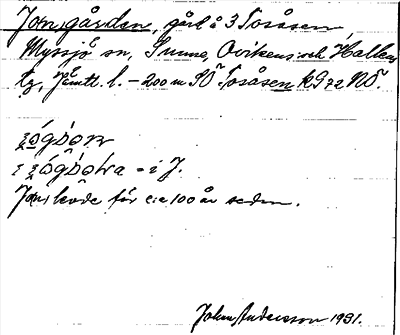 Jonsgården, gård å 3 Tosåsen,
Myssjö sn, Sunne, Ovikens och Hallens
tg, Jämtl. l. – 200 m SÖ Tosåsen k972 NÖ.
i J.
Jons levde för c:a 100 år sedan.
John Andersson 1931.